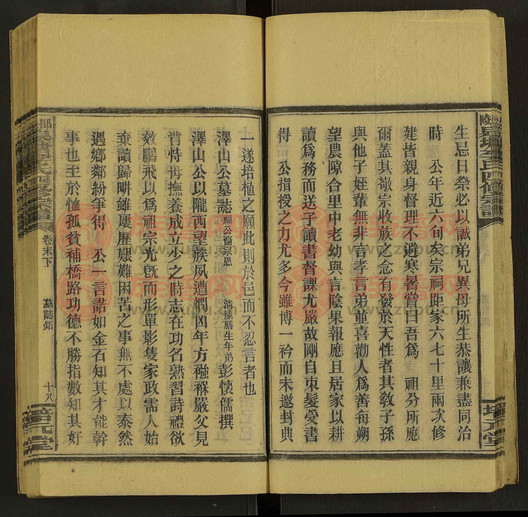 生忌日祭必以誠弟兄異母所生恭讓兼盡同治
時 公年近六旬矣宗祠距家六七十里兩次修
建皆親身督理不避寒暑嘗曰吾爲 祖分所應
爾其敬宗收族之念有發於天性者其敎子孫
與他子姪輩無非言孝言弟並喜勸人爲善每朔
望農隙合里中老幼與言陰果報應且居家以耕
讀爲務而送子讀書督課尤嚴故剛自束髮愛書
得 公指授之力尤多今雖博一衿而未邀封典
一遂培植之願此則於邑而不忍言者也
澤山公墓誌
彭懷儒撰
澤山公以隴西望族夙遭憫凶年方襁褓嚴父見
背恃母撫養成立少之時志在功名熟習詩禮欲
效鵬飛以爲祖宗光旣而形單影隻家政需人始
棄讀歸畊雖屢歷艱難困苦之事無不處以泰然
遇鄉鄰紛爭得 公一言諾如金石知其才能幹
事也至於恤孤貧補橋路功德不勝指數知其好
氏四修宗譜
卷末下
墓誌銘
十八
堂